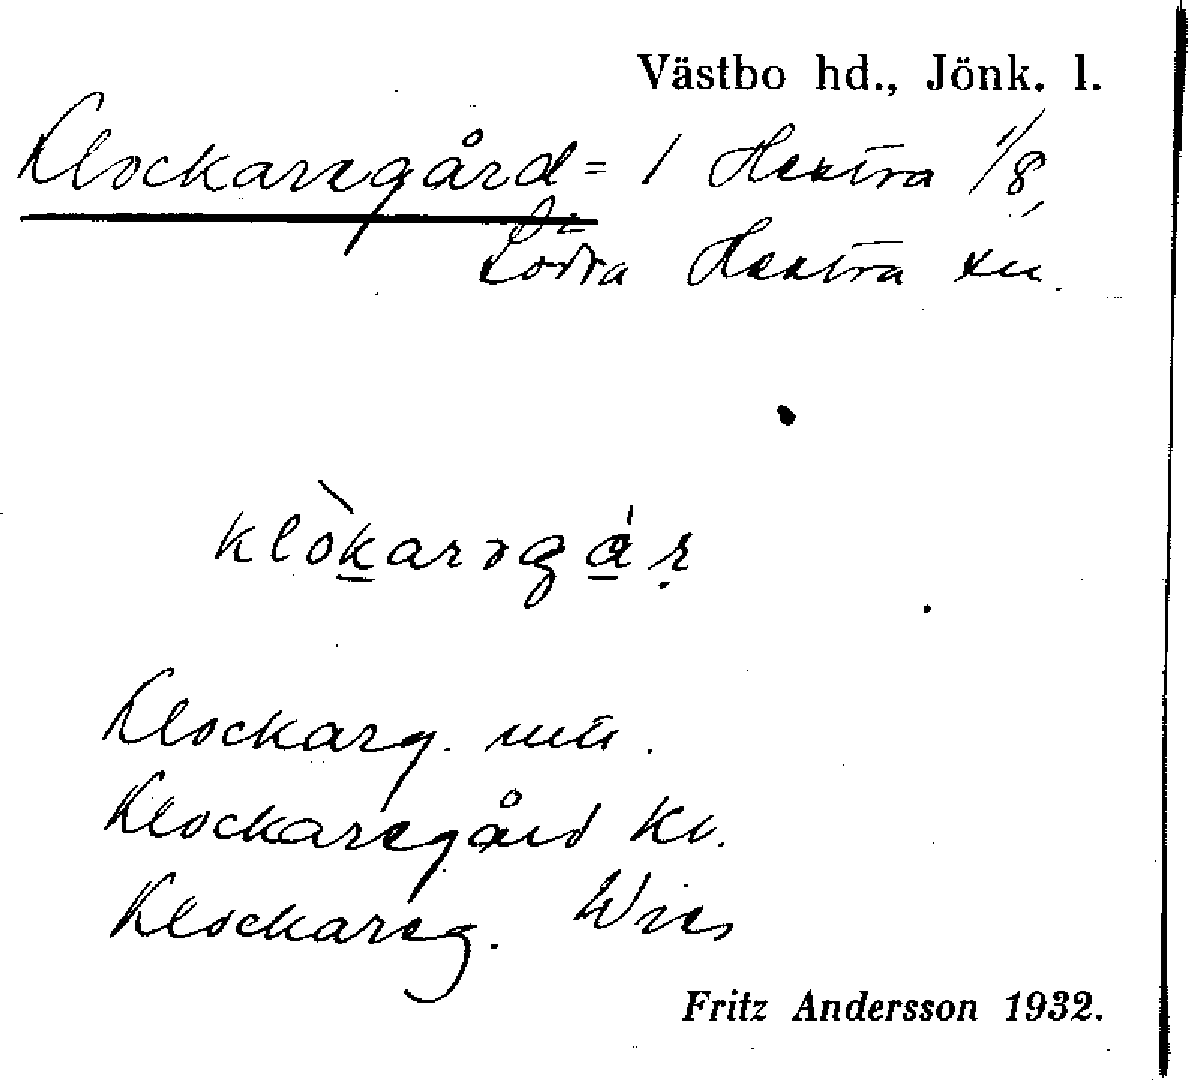 Västbo hd., Jönk. l.
Klockaregård = 1 Hestra 1/8,
Södra Hestra sn.
klòkarəgár
Klockarg. mtl.
Klockaregård Kv.
Klockareg.
Fritz Andersson 1932.